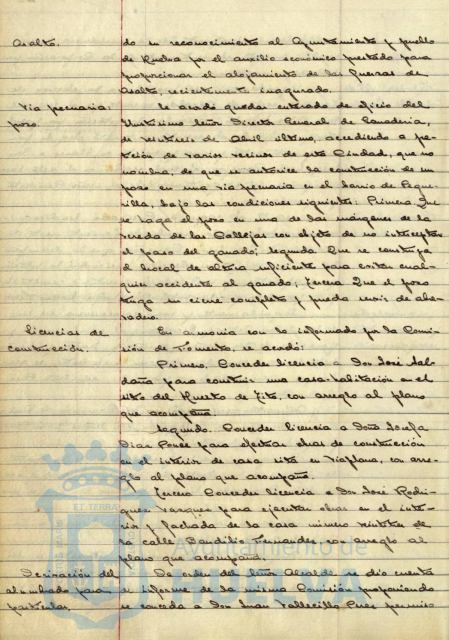 Asalto. do su reconocimiento al Ayuntamiento y pueblo
de Huelva por el auxilio económico prestado para
proporcionar el alojamiento de las fuerzas de
Asalto, recientemente inagurado.
Via pecuaria: Se acordó quedar enterado de oficio del
pozo. Ilustrísimo Señor Director General de Ganadería,
de veintiseis de Abril último, accediendo a pe-
tición de varios vecinos de esta Ciudad, que no
nombra, de que se autorice la construcción de un
pozo en una via pecuaria en el barrio de Pegue-
rilla, bajo las condiciones siguientes: Primera Que
se haga el pozo en una de las márgenes de la
vereda de las Callejas con objeto de no interceptar
el paso del ganado; Segunda Que se construya
el brocal de altura suficiente para evitar cual-
quier accidente al ganado; Tercera Que el pozo
tenga su cierre completo y pueda servir de abre-
vadero.
Licencias de En armonia con lo informado por la Comi-
construcción. sión de Fomento, se acordó:
Primero. Conceder licencia a Don José Sal-
daña para construir una casa-habitación en el
sitio del Huerto de Tito, con arreglo al plano
que acompaña.
Segundo. Conceder licencia a Doña Josefa
Diaz Ponce para efectuar obras de construcción
en el interior de casa sita en Viaplana, con arre-
glo al plano que acompaña.
Tercero Conceder licencia a Don José Rodri-
guez Vazquez para ejecutar obras en el inte-
rior y fachada de la casa número veintitres de
la calle Baudilio Fernandez, con arreglo al
plano que acompaña.
Derivación del De orden del Señor Alcalde se dio cuenta
alumbrado para de informe de la misma Comisión proponiendo
particular. se conceda a Don Juan Vallecillo Perez permiso
ET TERRÆ
Ayuntamiento de
HUELVA